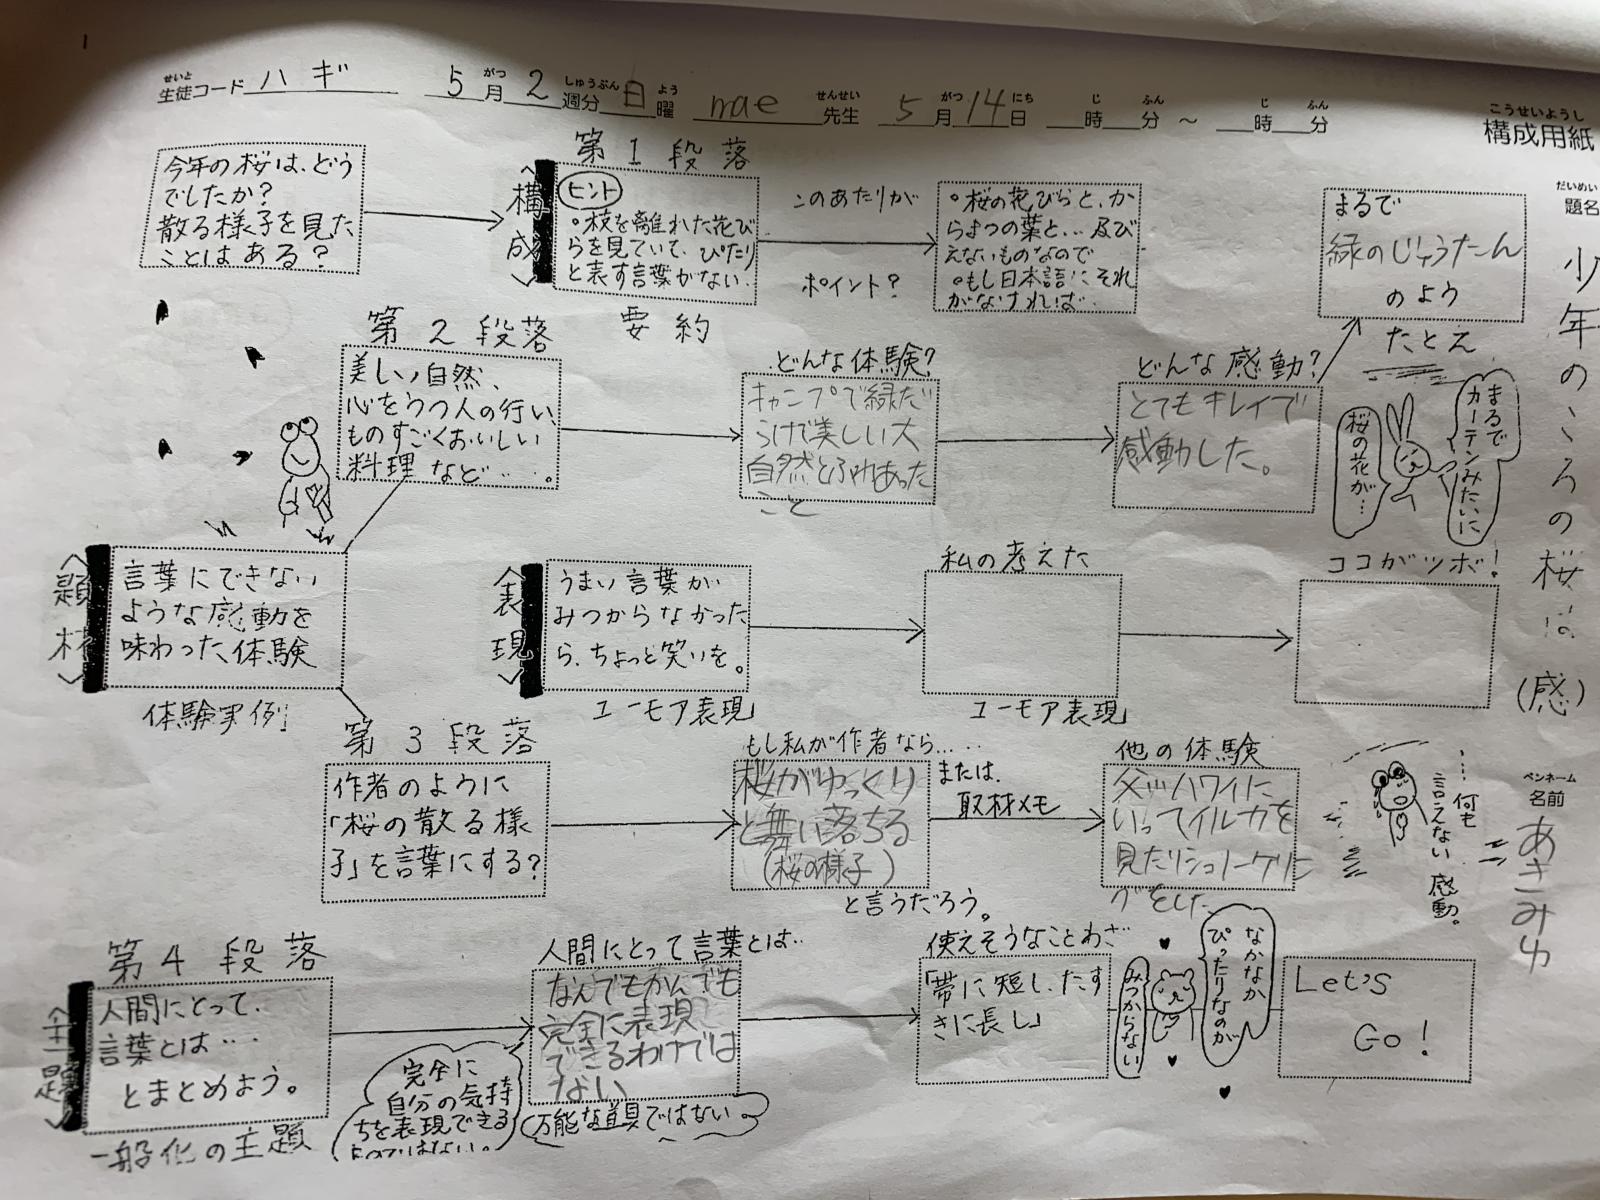 せいと がつ しゅうぶん よう せんせい がつ にち じ ふん じ ふん
生徒コード ハギ 5月2週分 日曜 mae 先生 5月14日 時 分 ~ 時 分
こうせいようし
構成用紙
だいめい
題名
少年のころの桜は(感)
ペンネーム
名前
あきみゆ
今年の桜は、どう
でしたか?
散る様子を見た
ことはある?
<構成>
第1段落
ヒント
○枝を離れた花び
らを見ていて、ぴたり
と表す言葉がない.
要約
このあたりが
ポイント?
○桜の花びらと、か
らまつの葉と…及び
えないものなので
○もし日本語にそれ
がなければ…
まるで
緑のじゅうたん
のよう
たとえ
第2段落
美しい自然、
心をうつ人の行い、
ものすごくおいしい
料理など…。
どんな体験?
キャンプで緑だ
らけで美しい大
自然とふれあった
こと
どんな感動?
とてもキレイで
感動した。
まるで
カーテンみたいに
桜の花が…
<題材>
言葉にできない
ような感動を
味わった体験
体験実例
<表現>
うまい言葉が
みつからなかった
ら、ちょっと笑いを。
ユーモア表現
私の考えた
ユーモア表現
ココがツボ!
第3段落
作者のように
「桜の散る様
子」を言葉にする?
もし私が作者なら……
桜がゆっくり
と舞い落ちる
(桜の様子)
と言うだろう。
または、
取材メモ
他の体験
父がハワイに
いってイルカを
見たりシュノーケリン
グをした
…何も
言えない
感動。
<主題>
第4段落
人間にとって、
言葉とは…
とまとめよう。
一般化の主題
完全に
自分の気持
ちを表現できる
ものではない。
人間にとって言葉とは…
なんでもかんでも
完全に表現
できるわけでは
ない
万能な道具ではない。
使えそうなことわざ
「帯に短し、たす
きに長し」
なかなか
ぴったりなのが
みつからない
Let's
Go!